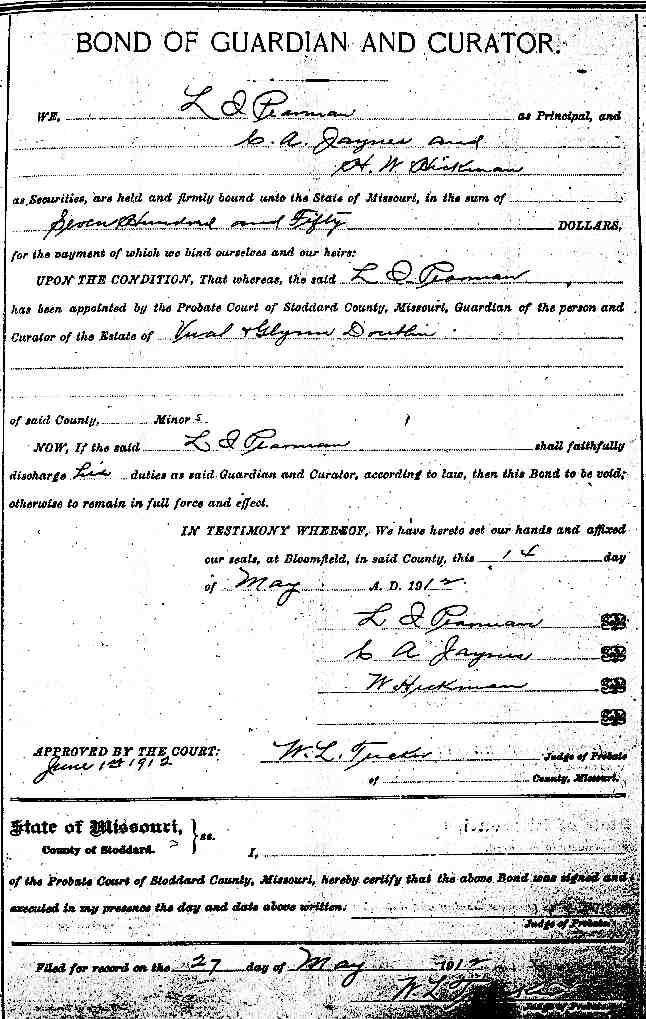 BOND OF GUARDIAN AND CURATOR.
WE, L I Pearman as Principal, and
C. A. Jaynes and
H. W Hickman
as Securities, are held and firmly bound unto the State of Missouri, in the sum of
Seven Hundred and Fifty DOLLARS,
for the payment of which we bind ourselves and our heirs:
UPON THE CONDITION, That whereas, the said L I Pearman
has been appointed by the Probate Court of Stoddard County, Missouri, Guardian of the person and
Curator of the Estate of Vual & Glynn Douthin
of said County, Minors.
NOW, If the said L I Pearman shall faithfully
discharge his duties as said Guardian and Curator, according to law, then this Bond to be void;
otherwise to remain in full force and effect.
IN TESTIMONY WHEREOF, We have hereto set our hands and affixed
our seals, at Bloomfield, in said County, this 14 day
of May A. D. 1912
L I Pearman
C A Jaynes
W Hickman
APPROVED BY THE COURT: W. L. Tucker Judge of Probate
June 1st 1912 of County, Missouri.
State of Missouri, } ss.
County of Stoddard. I,
of the Probate Court of Stoddard County, Missouri, hereby certify that the above Bond was signed and
executed in my presence the day and date above written.
Judge of Probate.
Filed for record on the 27 day of May 1912
W L Tucker
Judge of Probate.